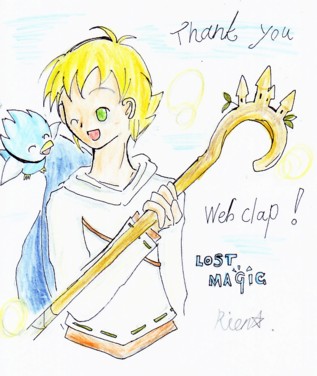 Thank you
Web clap!
LOST
MAGIC
Rien☆.